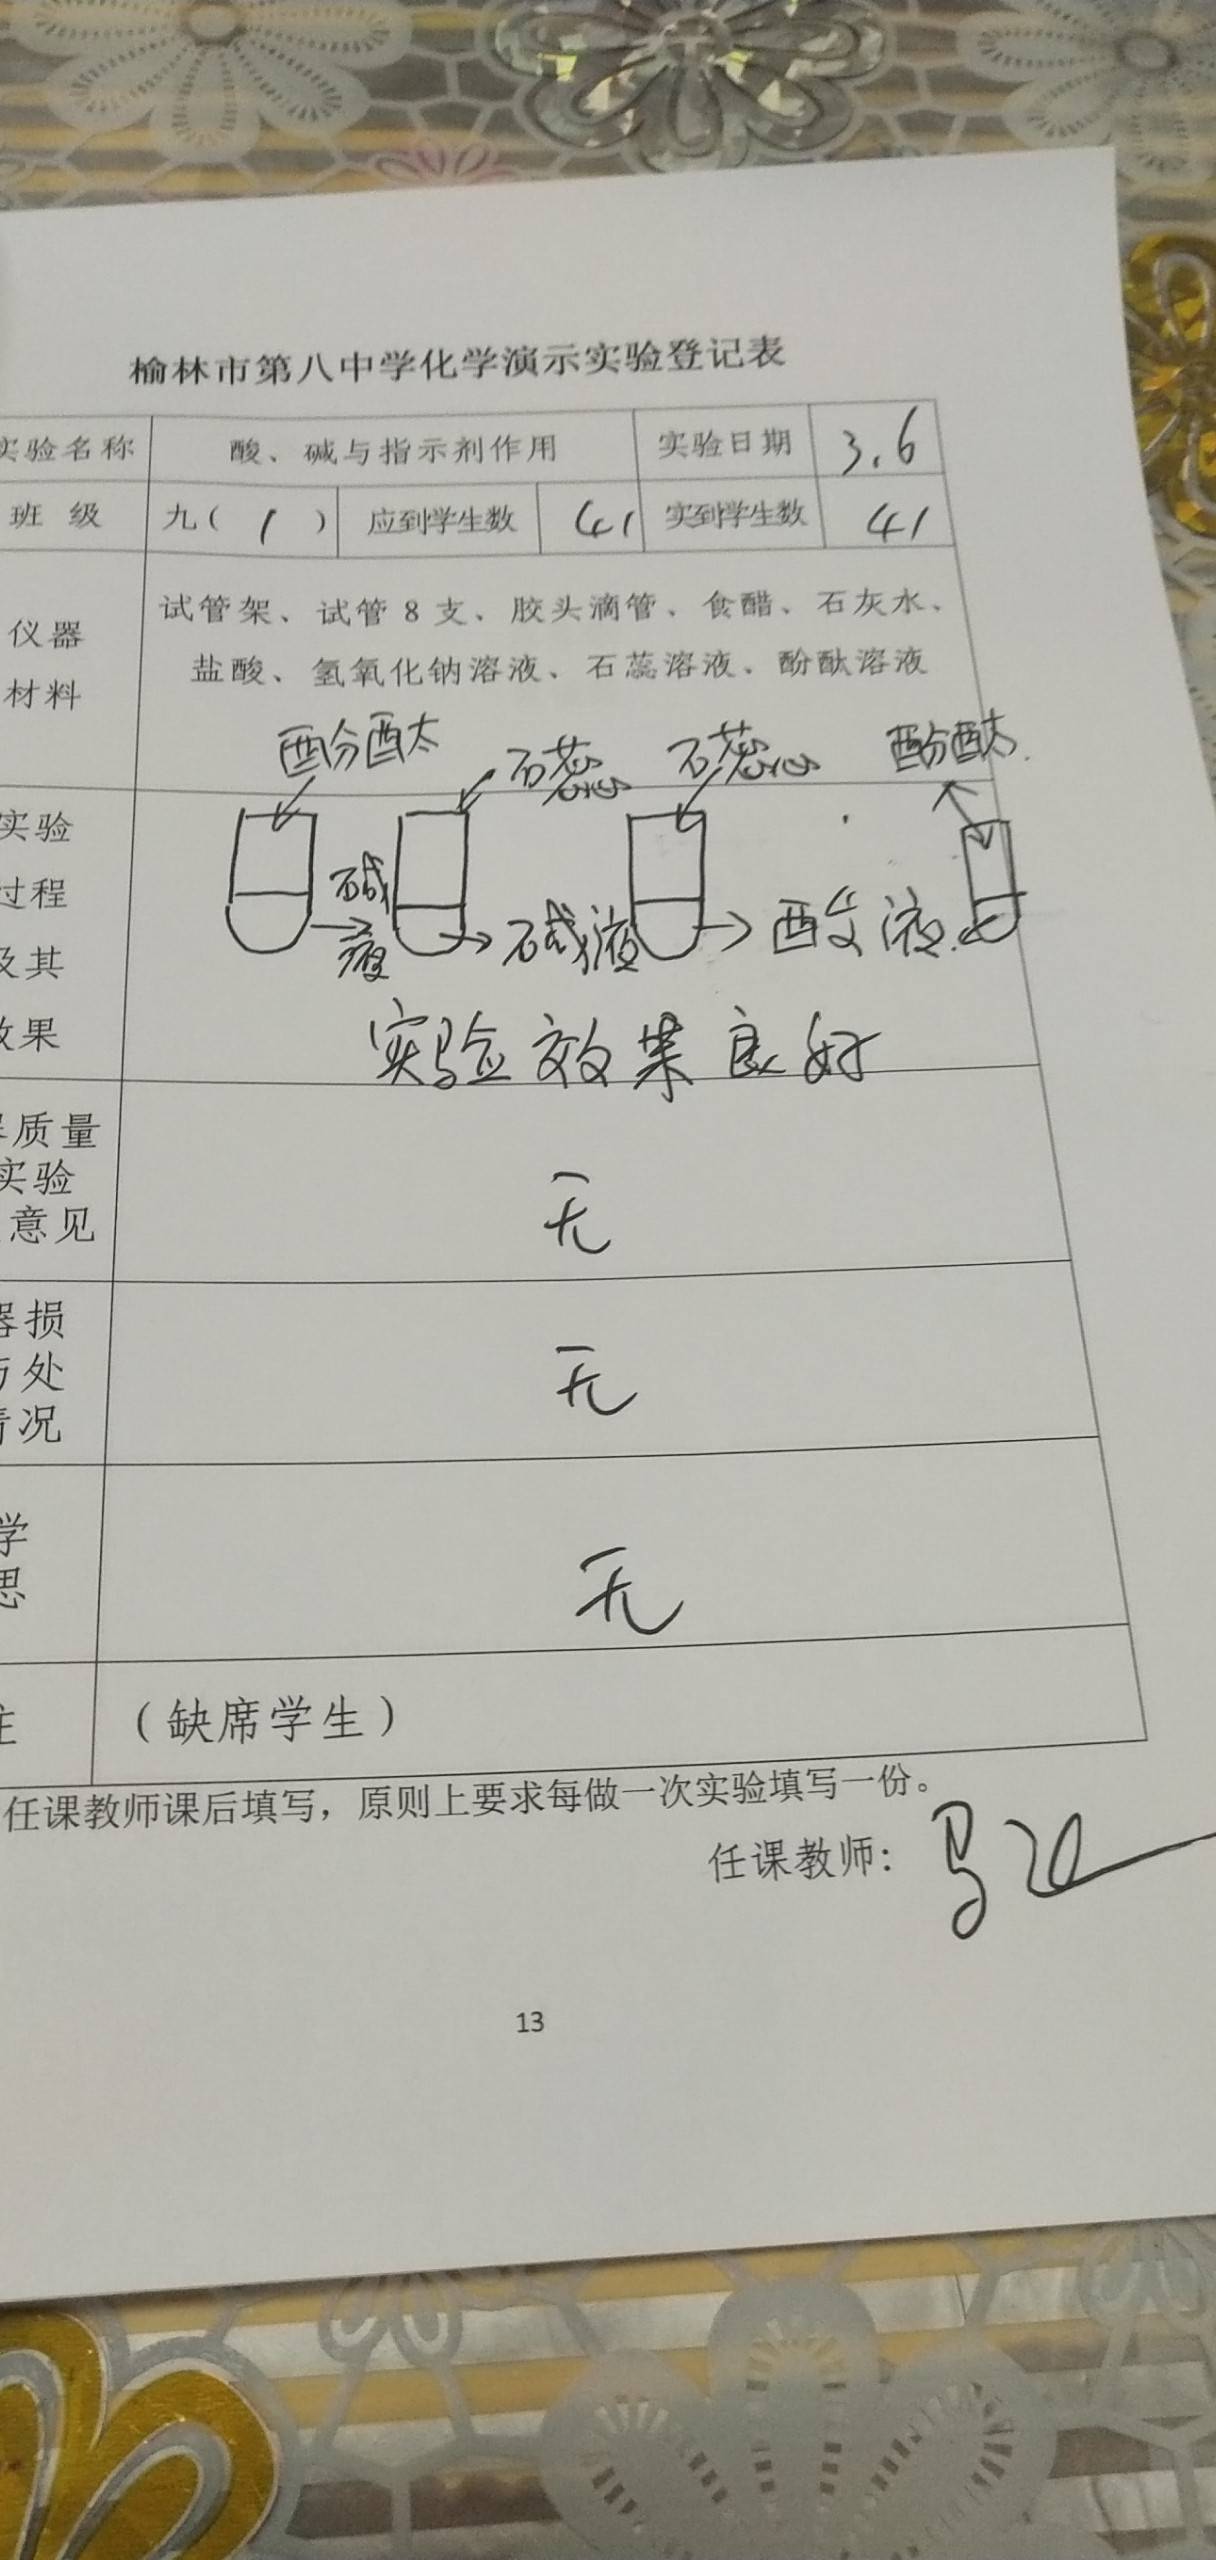 榆林市第八中学化学演示实验登记表
实验名称 酸、碱与指示剂作用 实验日期 3.6
班 级 九( 1 ) 应到学生数 41 实到学生数 41
仪器 试管架、试管 8 支、胶头滴管、食醋、石灰水、
材料 盐酸、氢氧化钠溶液、石蕊溶液、酚酞溶液
酚酞 石蕊 石蕊 酚酞.
实验
过程
碱液 碱液 酸液.
及其
效果 实验效果良好
质量
实验
意见
无
器损
与处
情况
无
学
思
无
注 (缺席学生)
任课教师课后填写，原则上要求每做一次实验填写一份。
任课教师: 马
13